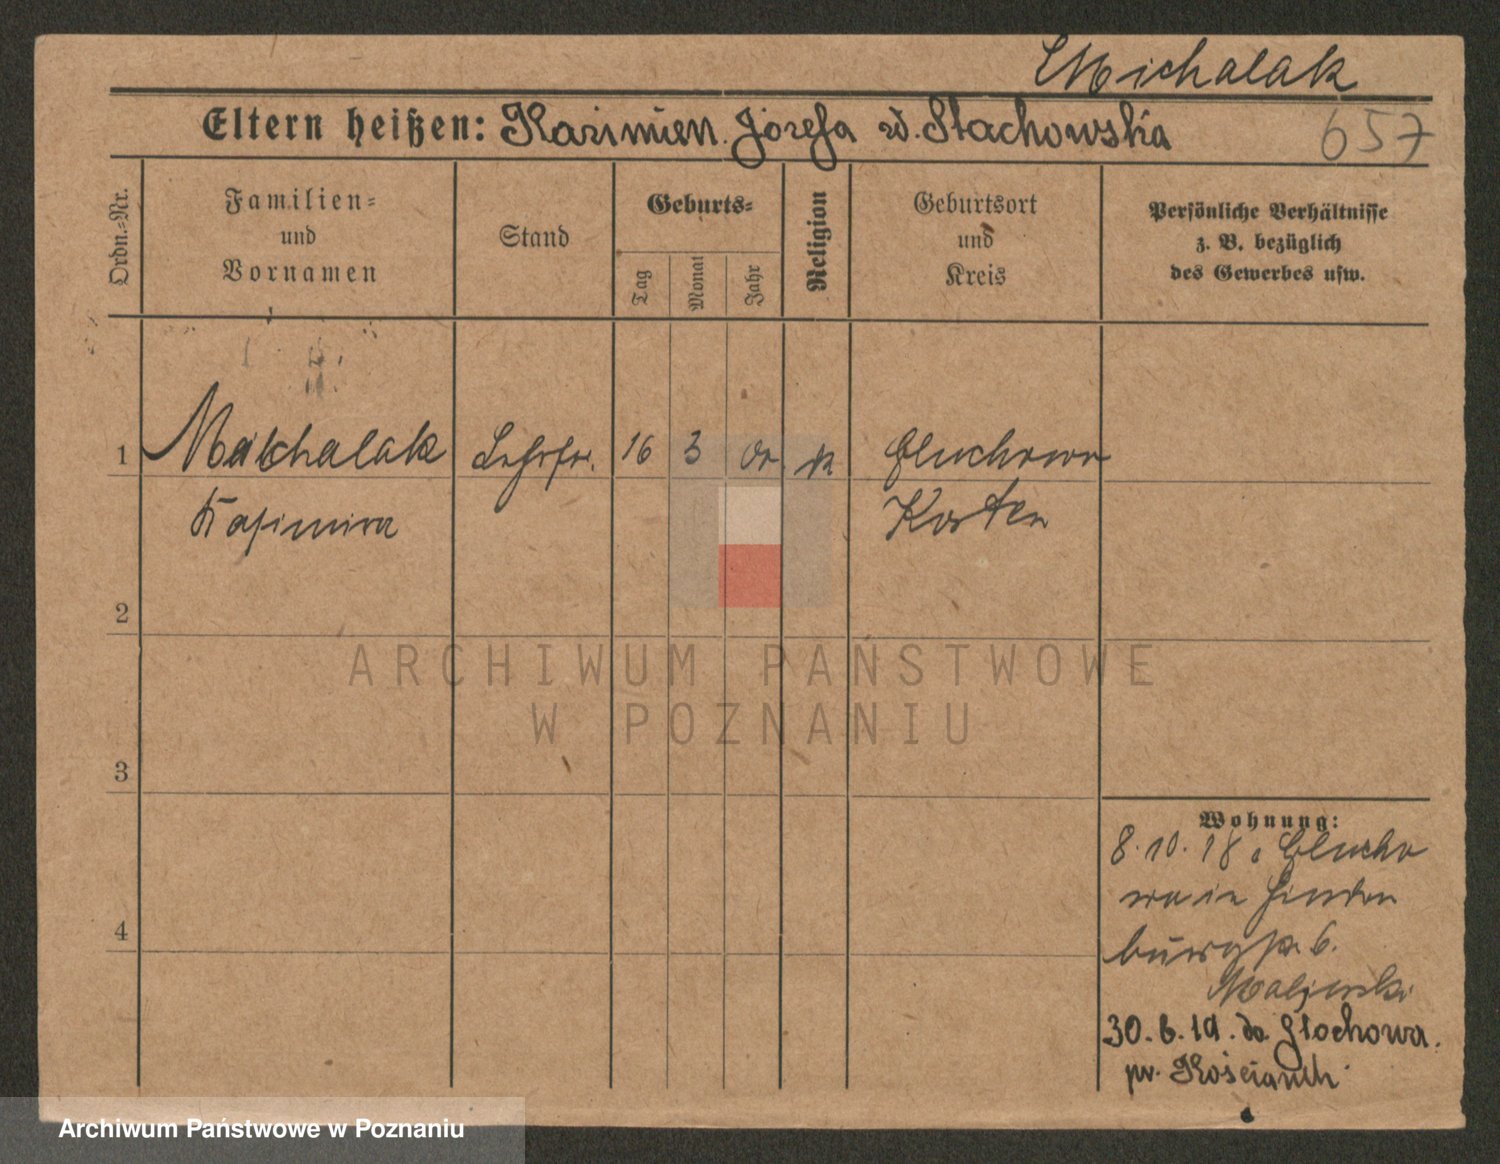 Michalak
Eltern heißen: Kazimierz. Józefa ż. Stachowska
657
Ordn.-Nr.
Familien-
und
Vornamen
Stand
Geburts-
Tag
Monat
Jahr
Religion
Geburtsort
und
Kreis
Persönliche Verhältnisse
z. B. bezüglich
des Gewerbes usw.
1 Michalak 16 3 k Gluchowo
Kasimira Kosten
2
3
4
Wohnung:
8.10.18. Glucho
wo in Hinden
burgstr. 6.
Majewski
30.6.19. do Głochowa.
pw. Kościański
ARCHIWUM PAŃSTWOWE
W POZNANIU
Archiwum Państwowe w Poznaniu